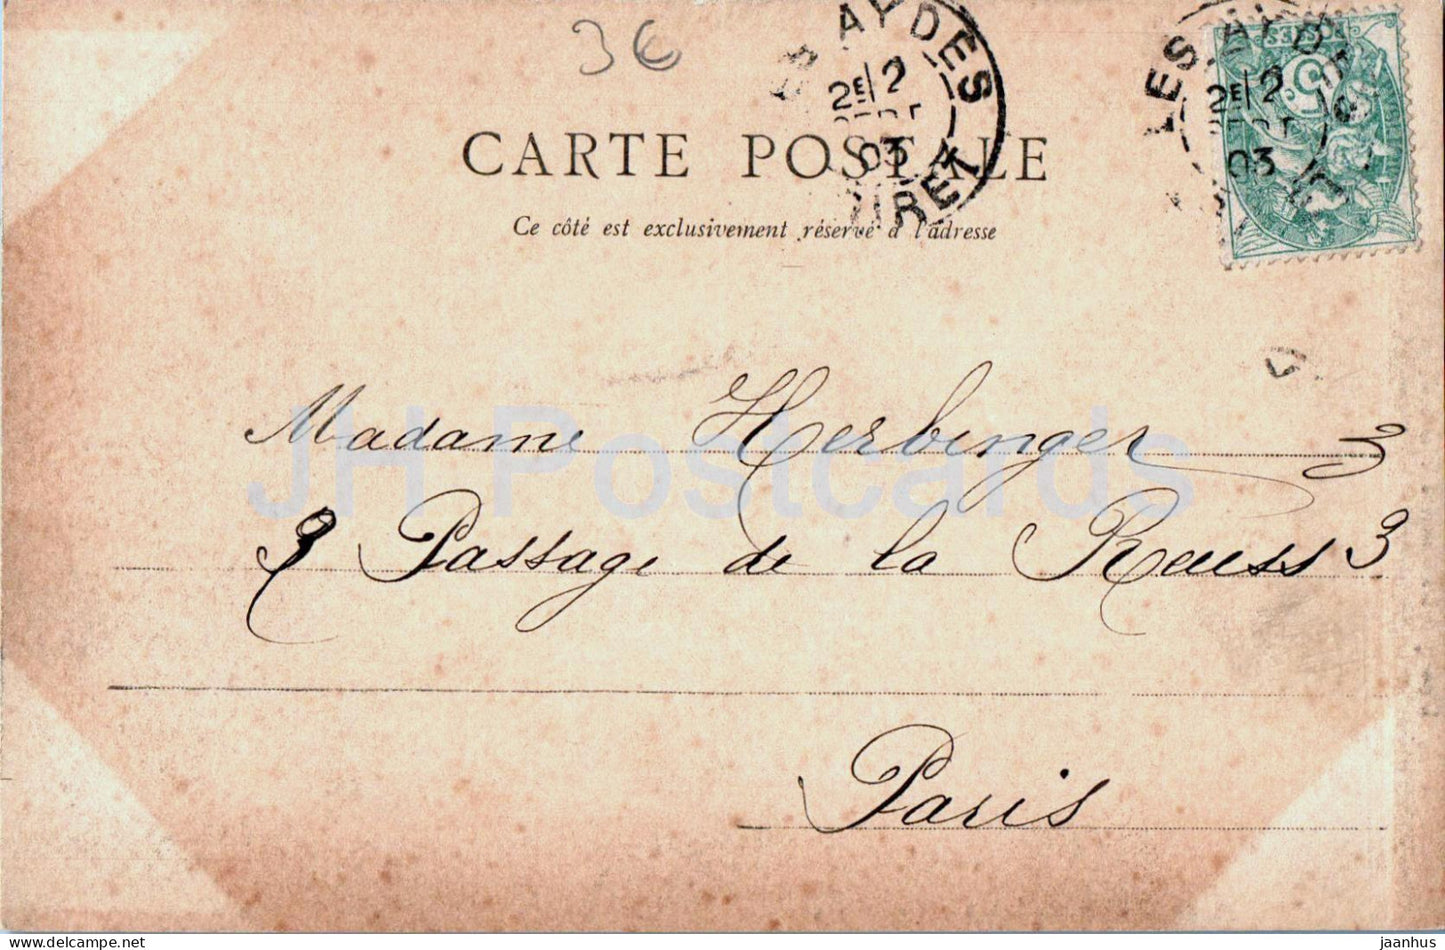 3€
LES AYDES
2E/2
03
LOIRET
LES AYDES
2E/2
03
CARTE POSTALE
Ce côté est exclusivement réservé à l'adresse
Madame Herbinger 3
3 Passage de la Reuss 3
Paris
JH Postcards
www.delcampe.net
jaanhus